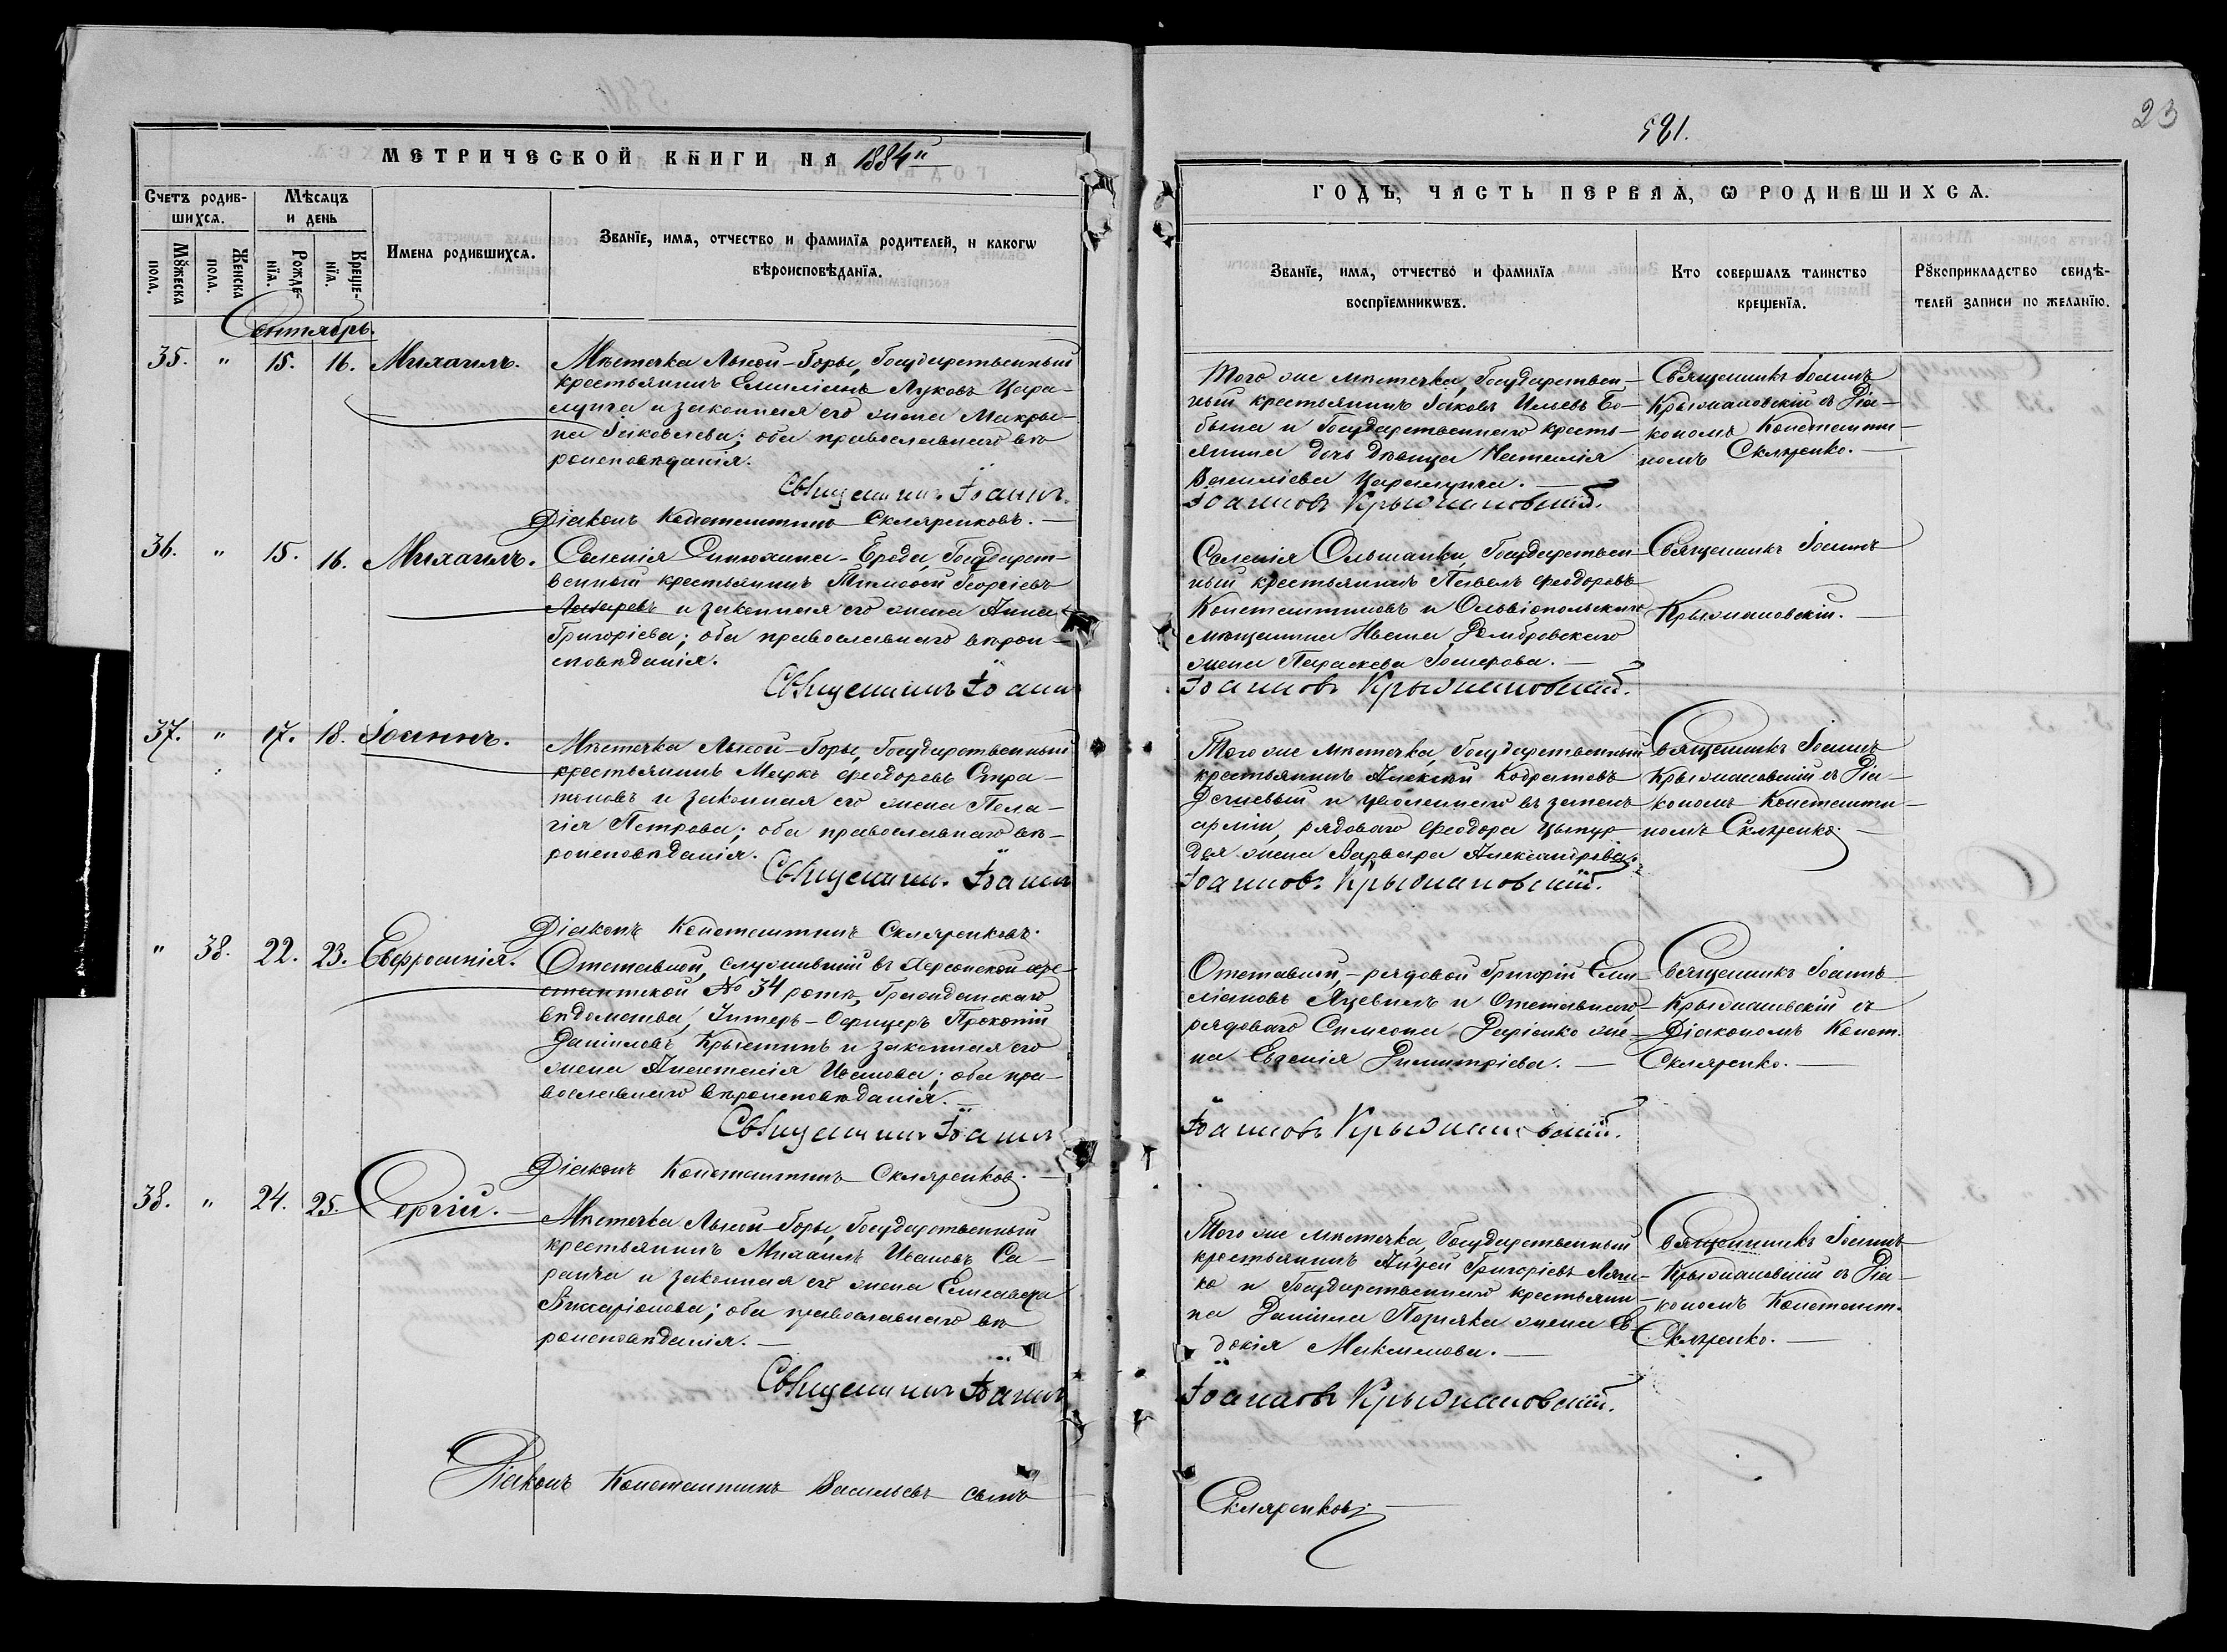 МЕТРИЧЕСКОЙ КНИГИ НА 1884й
Счетъ родив-
шихсѧ.
Мѣсяцъ
и день
Мꙋжеска
пола.
Женска
пола.
Рожде-
нїѧ.
Креще-
нїѧ.
Имена родившихсѧ.
Званїе, имѧ, отчество и фамилїѧ родителей, и какогѡ
вѣроисповѣданїѧ.
Сентябрь.
35. " 15. 16. Михаилъ.
Мѣстечка Лысой-Горы, Государственный
крестьянинъ Емиліанъ Луковъ Цара-
лунга и законная его жена Макри-
на Іаковлева; оба православнаго вѣ-
роисповѣданія.
Священникъ Іоаннъ
Діаконъ Константинъ Скляренковъ.
36. " 15. 16. Михаилъ.
Селенія Синюхина-Брода, Государст-
венный крестьянинъ Тимофей Георгіевъ
Лазаревъ и законная его жена Анна
Григоріева; оба православнаго вѣрои-
сповѣданія.
Священникъ Іоаннъ
37. " 17. 18. Іоаннъ.
Мѣстечка Лысой-Горы, Государственный
крестьянинъ Маркъ Феодоровъ Стра-
тоновъ и законная его жена Пела-
гія Петрова; оба православнаго вѣ-
роисповѣданія.
Священни. Іоаннъ
Діаконъ Константинъ Скляренковъ.
" 38. 22. 23. Евфросинія.
Отставной, служившій въ Херсонской аре-
стантской № 34 ротѣ, Гражданскаго
вѣдомства, Унтеръ-Офицеръ Прокопій
Даниловъ Крыстинъ и законная его
жена Анастасія Иванова; оба пра-
вославнаго вѣроисповѣданія.
Священникъ Іоаннъ
Діаконъ Константинъ Скляренковъ.
38. " 24. 25. Сергій.
Мѣстечка Лысой-Горы, Государственный
крестьянинъ Михаилъ Ивановъ Са-
ранча и законная его жена Елисавета
Виссаріонова; оба православнаго вѣ-
роисповѣданія.
Священникъ Іоаннъ
Діаконъ Константинъ Васильевъ сынъ
581.
23
ГОДЪ, ЧАСТЬ ПЕРВАѦ, Ѡ РОДИВШИХСѦ.
Званїе, имѧ, отчество и фамилїѧ
воспрїемникѡвъ.
Кто совершалъ таинство
крещенїѧ.
Рꙋкоприкладство свидѣ-
телей записи по желанїю.
Того же мѣстечка, Государствен-
ный крестьянинъ Іаковъ Ильевъ Бо-
и Государственнаго кресть-
янина дочь дѣвица Наталія
Василіева Царалунга.
Священникъ Іоаннъ
Крыжановскій съ Діа-
кономъ Константи-
номъ Скляренко.
Іоанновъ Крыжановскій.
Селенія Ольшанки, Государствен-
ный крестьянинъ Павелъ Феодоровъ
Константиновъ и Ольвіопольскаго
мѣщанина Ивана Домбровскаго
жена Параскева
Священникъ Іоаннъ
Крыжановскій.
Іоанновъ Крыжановскій.
Того же мѣстечка, Государственный
крестьянинъ Алексѣй Кодратовъ
и уволеннаго въ запасъ
арміи, рядоваго Феодора Цыпур-
дея жена Варвара Александрова.
Священникъ Іоаннъ
Крыжановскій съ Діа-
кономъ Константи-
номъ Скляренко.
Іоанновъ Крыжановскій.
Отставный,-рядовой Григорій Еми-
ліановъ Яцевилъ и Отставнаго
рядоваго Симеона Даріенко же-
на Евгенія Димитріева.
Священникъ Іоаннъ
Крыжановскій съ
Діакономъ Конст.
Скляренко.
Іоанновъ Крыжановскій.
Того же мѣстечка, Государственный
крестьянинъ Андрей Григоріевъ
и Государственнаго крестьяни-
на Даніила Позняка жена Ев-
докія Максимова.
Священникъ Іоаннъ
Крыжановскій съ Діа-
кономъ Констант.
Скляренко.
Іоанновъ Крыжановскій.
Скляренковъ